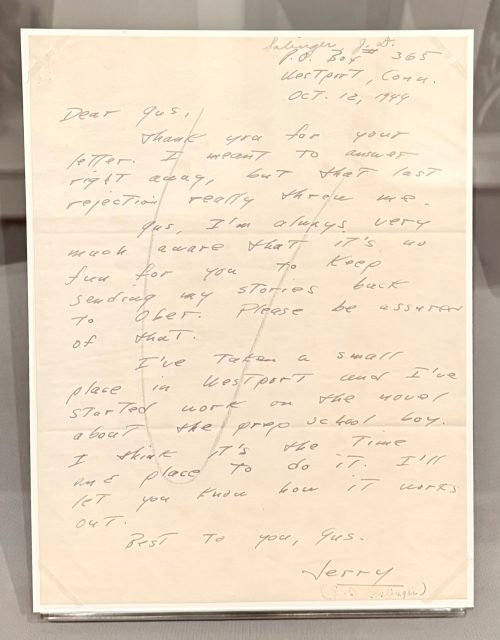 Salinger, J. D.
P.O. Box 365
Westport, Conn.
Oct. 12, 1949
Dear Gus,
Thank you for your
letter. I meant to answer
right away, but that last
rejection really threw me.
Gus, I'm always very
much aware that it's no
fun for you to keep
sending my stories back
to Ober. Please be assured
of that.
I've taken a small
place in Westport and I've
started work on the novel
about the prep school boy.
I think it's the time
and place to do it. I'll
let you know how it works
out.
Best to you, Gus.
Jerry
(J. D. Salinger)